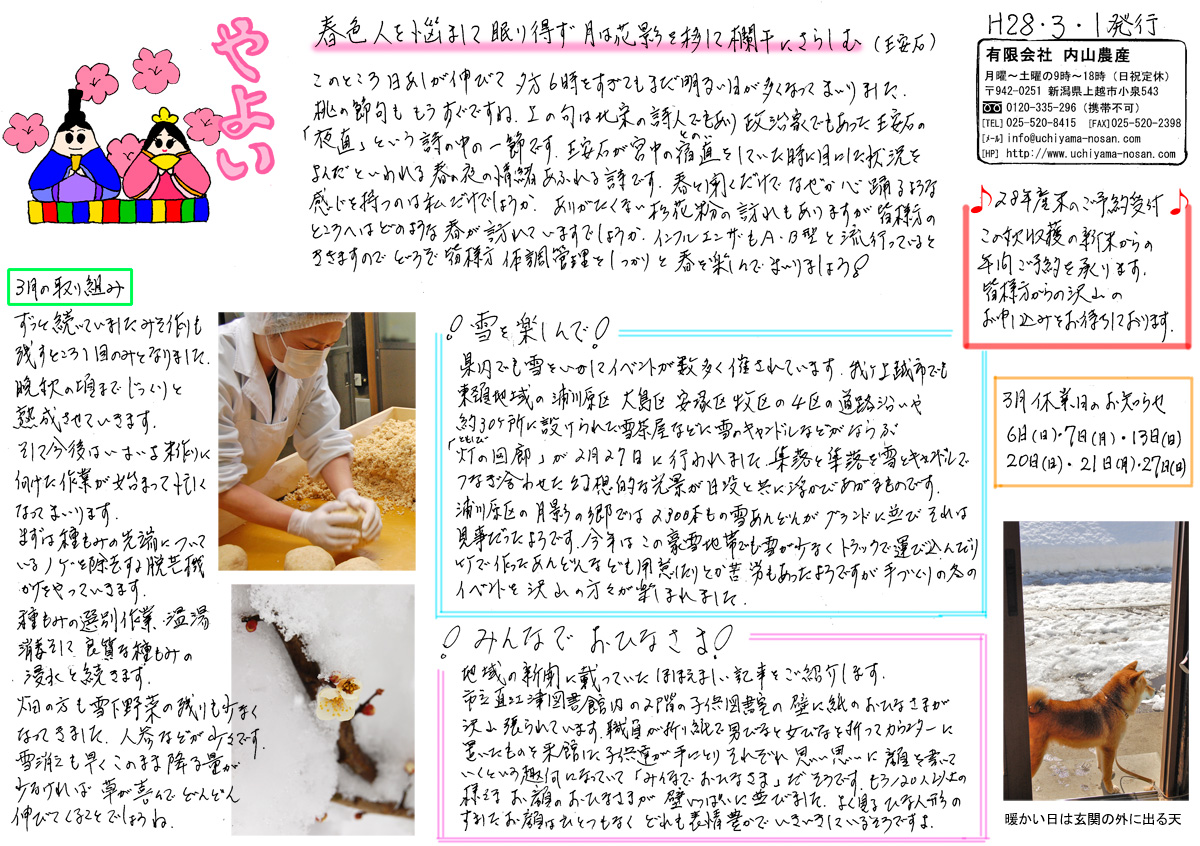 やよい
春色人を悩まして眠り得ず月は花影を移して欄干にさらしむ(王安石)
このところ日あしが伸びて夕方6時をすぎてもまだ明るい日が多くなってまいりました。
桃の節句ももうすぐですね。上の句は北宋の詩人でもあり政治家でもあった王安石の
「夜直」という詩の中の一節です。王安石が宮中の宿直をしていた時に目にした状況を
とのい
よんだといわれる春の夜の情緒あふれる詩です。春と聞くだけでなぜか心踊るような
感じを持つのは私だけでしょうか。ありがたくない杉花粉の訪れもありますが皆様方の
ところへはどのような春が訪れていますでしょうか。インフルエンザもA・B型と流行っていると
ききますので どうぞ皆様方 体調管理をしっかりと春を楽しんでまいりましょう!
H28・3・1発行
有限会社 内山農産
月曜~土曜の9時~18時(日祝定休)
〒942-0251 新潟県上越市小泉543
0120-335-296(携帯不可)
[TEL]025-520-8415 [FAX]025-520-2398
[メール] info@uchiyama-nosan.com
[HP] http://www.uchiyama-nosan.com
♪28年産米のご予約受付♪
この秋収穫の新米からの
年間ご予約を承ります。
皆様方からの沢山の
お申し込みをお待ちしております。
3月の取り組み
ずっと続いていましたみそ作りも
残すところ1回のみとなりました。
晩秋の頃までじっくりと
熟成させていきます。
そして今後はいよいよ米作りに
向けた作業が始まって忙しく
なってまいります。
まずは種もみの先端について
いるノゲを除去する脱芒機
がけをやっていきます。
種もみの選別作業、温湯
消毒そして良質な種もみの
浸水と続きます。
畑の方も雪下野菜の残りも少なく
なってきました。人参などが少々です。
雪消えも早くこのまま降る量が
少なければ草が喜んでどんどん
伸びてくることでしょうね。
!雪を楽しんで!
県内でも雪をいかしてイベントが数多く催されています。我が上越市でも
東頸地域の浦川原区 大島区 安塚区 牧区の4区の道路沿いや
約30ヶ所に設けられた雪茶屋などに雪のキャンドルなどがならぶ
「灯の回廊」が2月27日に行われました。集落と集落を雪とキャンドルで
ともしび
つなぎ合わせた幻想的な光景が日没と共に浮かびあがるものです。
浦川原区の月影の郷では2300本もの雪あんどんがグランドに並びそれは
見事だったようです。今年はこの豪雪地帯でも雪が少なくトラックで運び込んだり
竹で作ったあんどんなども用意したりとか苦労もあったようですが手づくりの冬の
イベントを沢山の方々が楽しまれました。
!みんなでおひなさま!
地域の新聞に載っていたほほえましい記事をご紹介します。
市立直江津図書館内の2階の子供図書室の壁に紙のおひなさまが
沢山張られています。職員が折り紙で男びなと女びなを折ってカウンターに
置いたものを来館した子供達が手にとりそれぞれ思い思いに顔を書いて
いくという趣向になっていて「みんなでおひなさま」だそうです。もう120人以上の
様々なお顔のおひなさまが壁いっぱいに並びました。よく見るひな人形の
すましたお顔はひとつもなくどれも表情豊かでいきいきしているそうですよ。
3月休業日のお知らせ
6日(日)・7日(月)・13日(日)
20日(日)・21日(月)・27日(日)
暖かい日は玄関の外に出る天